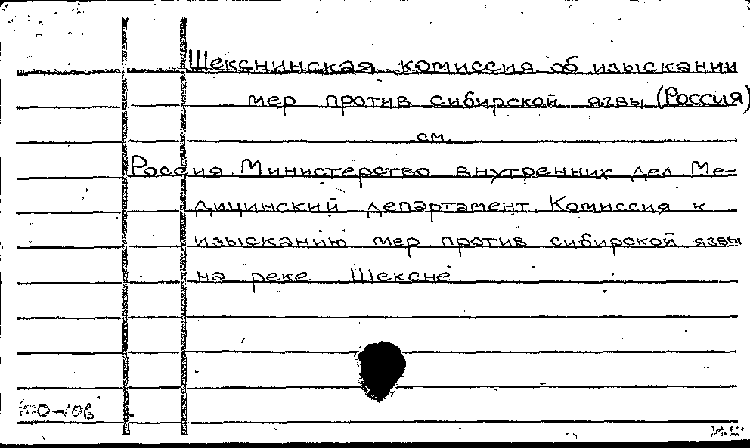 Шекснинская комиссия об изыскании
мер против сибирской язвы (Россия)
см.
Россия. Министерство внутренних дел Ме-
дицинский департамент. Комиссия к
изысканию мер против сибирской язвы
на реке Шексне